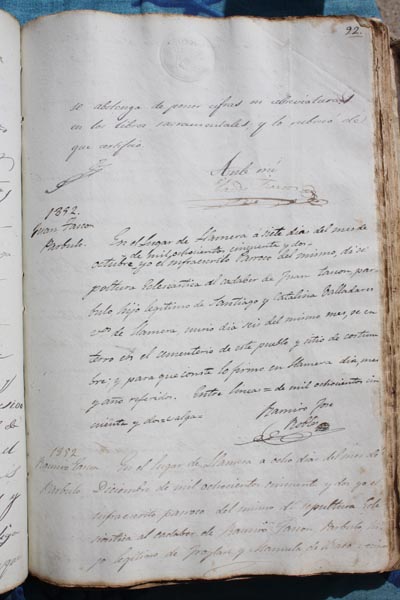 92.
se abstenga de poner cifras ni abreviaturas
en los libros sacramentales y lo rubricó de
que certifico
Ante mi
1852.
Juan Tascon
Parbulo.
En el lugar de Llamera a siete dias del mes de
de mil ochocientos cincuenta y dos
octubre, yo el infraescrito Parroco del mismo, di se-
pultura eclesiastica al cadaber de Juan tascon, par-
bulo hijo legitimo de Santiago y Catalina Valladares
vecinos de Llamera, murio dia seis del mismo mes, se en-
terró en el cementerio de este pueblo y sitio de costum-
bre; y para que conste lo firmo en Llamera dia, mes
y año referido. Entre lineas = de mil ochocientos cin-
cuenta y dos = valga =
Ramiro
Robles
1852
Tascon
Parbulo
En el lugar de Llamera a ocho dias del mes de
Diciembre de mil ochocientos cincuenta y dos yo el
infraescrito parroco del mismo di sepultura Ecle-
siastica al cadaber de Tascon, Parbulo hi-
jo legitimo de Froylan y Manuela de